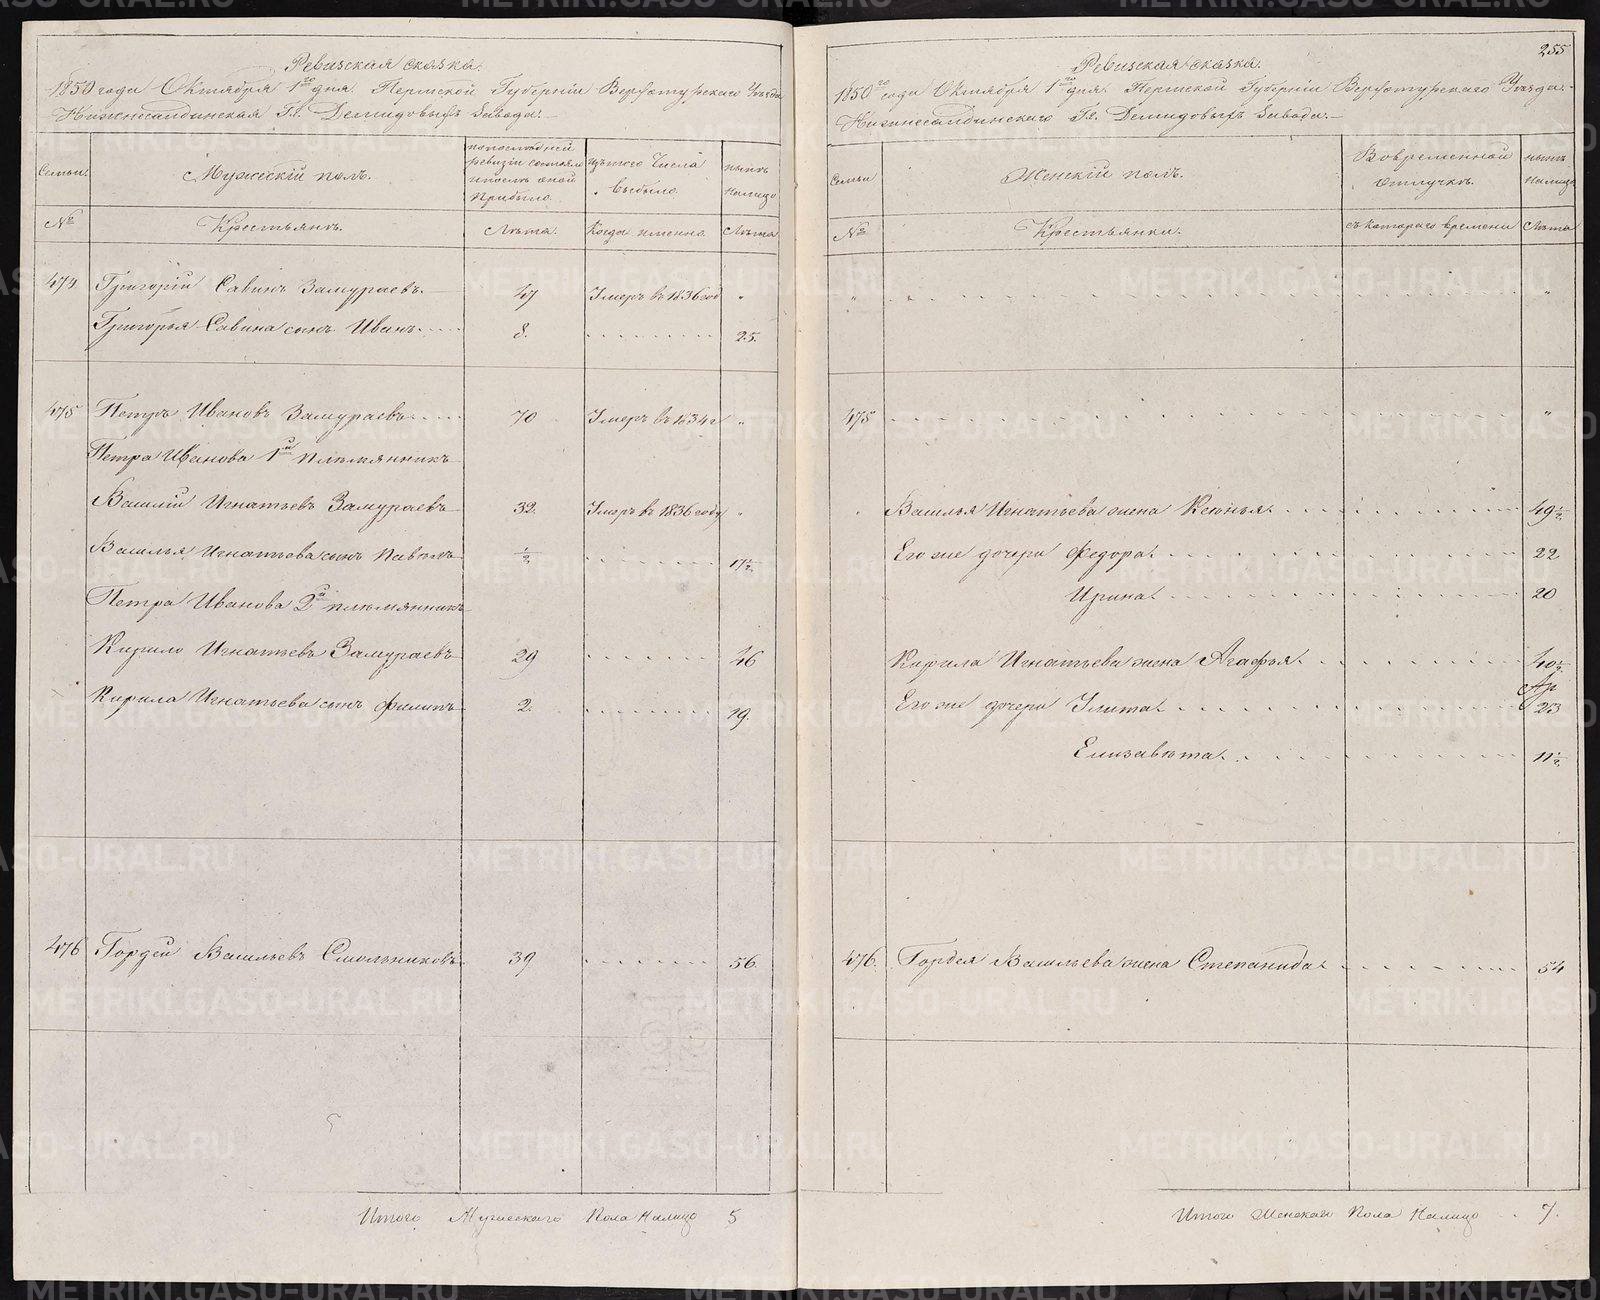 Ревизская сказка.
1850 года Октября 1го дня. Пермской Губерніи Верхотурскаго Уѣзда
Нижнесалдинская Гг. Демидовыхъ завода.
Семьи.
Мужескій полъ.
по последней
ревизіи состояло
и после оной
Прибыло
Изъ того Числа
выбыло
нынѣ
налицо
№
Крестьянъ.
Лѣта.
Когда именно
Лѣта
474 Григорій Савинъ Замураевъ. 47 Умеръ въ 1836 год "
Григорья Савина сынъ Иванъ 8. 25.
475 Петръ Ивановъ Замураевъ 70 Умеръ въ 1834 г "
Петра Иванова 1й племянникъ
Василій Игнатьевъ Замураевъ 32. Умеръ въ 1836 году "
Василья Игнатьева сынъ Павелъ ½ 17½
Петра Иванова 2й племянникъ
Кирило Игнатьевъ Замураевъ 29 46
Кирила Игнатьева сынъ Филипъ 2. 19.
476 Гордей Васильевъ Смольниковъ 39 56.
Итого Мужескаго Пола Налицо 5
255
Ревизская сказка.
1850го года Октября 1го дня. Пермской Губерніи Верхотурскаго Уѣзда.
Нижнесалдинскаго Гг. Демидовыхъ завода.
Семьи
Женскій полъ.
Во временной
отлучкѣ.
нынѣ
налицо
№
Крестьянки.
съ котораго времени
Лѣта
" "
475 "
Василья Игнатьева жена Ксенья 49½
Его же дочери Федора 22
Ирина 20
Кирила Игнатьева жена Агафья 40½
Его же дочери Улита 23
Елизавета 11½
476. Гордея Васильева жена Степанида 54
Итого Женскаго Пола Налицо 7.
METRIKI.GASO-URAL.RU